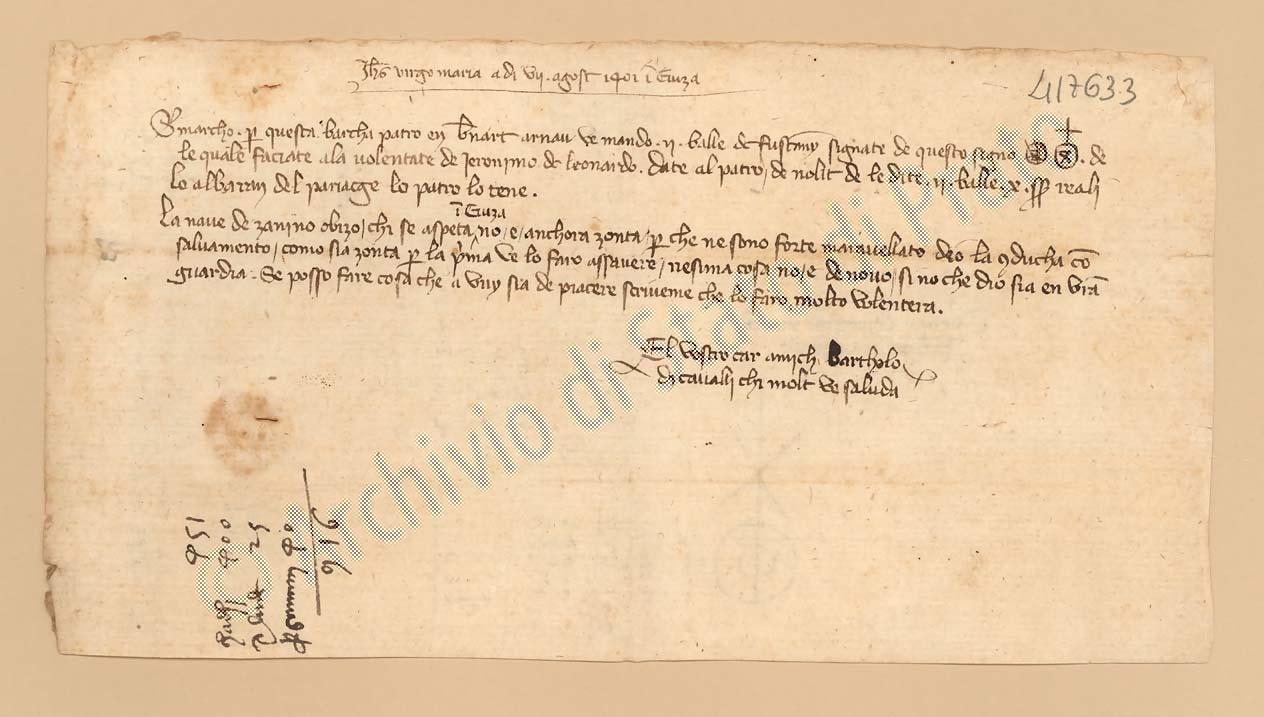 Jhs virgo maria a di vii. agost 1401 i Eviza
417633
S marcho. p questa barcha patro en bnart arnau ve mando. ii. balle de fustany signate de questo signo de
le quale faciate ala volentate de Jeronimo de leonardo. date al patro de nolit de le dite. ii. balle. x. reali
lo albaran del pariacge lo patro lo tene.
i Eviza
La nave de zanino obizo / chi se aspeta no / e / anchora zonta / p che ne sono forte maravellato deo la 9ducha co
salvamento / como sia zonta p la pma ve lo faro assavere / nesuna cosa no / e de novo / si no che dio sia en vra
guardia. Se posso fare cosa che a vuy sia de piacere scriveme che lo faro molto volentera.
El vostro car amich Bartholo
di cavalli chi molt ve saluda
© Archivio di Stato di Prato